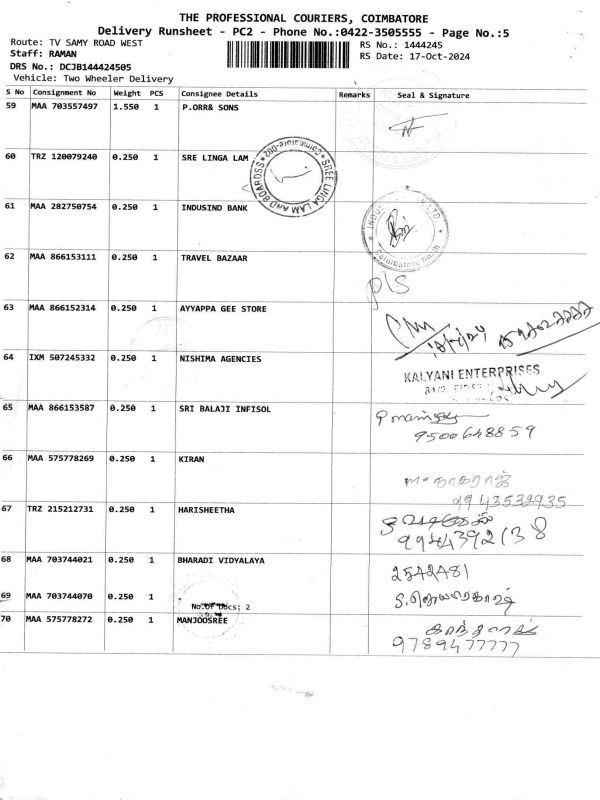 THE PROFESSIONAL COURIERS, COIMBATORE
Delivery Runsheet - PC2 - Phone No.:0422-3505555 - Page No.:5
Route: TV SAMY ROAD WEST RS No.: 1444245
Staff: RAMAN RS Date: 17-Oct-2024
DRS No.: DCJB144424505
Vehicle: Two Wheeler Delivery
S No Consignment No Weight PCS Consignee Details Remarks Seal & Signature
59 MAA 703557497 1.550 1 P.ORR& SONS
60 TRZ 120079240 0.250 1 SRE LINGA LAM
SREE LINGA LAM AND BOARDSS Coimbatore-002
61 MAA 282750754 0.250 1 INDUSIND BANK
Coimbatore North
62 MAA 866153111 0.250 1 TRAVEL BAZAAR
pls
63 MAA 866152314 0.250 1 AYYAPPA GEE STORE
64 IXM 507245332 0.250 1 NISHIMA AGENCIES
KALYANI ENTERPRISES
65 MAA 866153587 0.250 1 SRI BALAJI INFISOL
9500648859
66 MAA 575778269 0.250 1 KIRAN
9943532935
67 TRZ 215212731 0.250 1 HARISHEETHA
9944392138
68 MAA 703744021 0.250 1 BHARADI VIDYALAYA
2542481
69 MAA 703744070 0.250 1
No.of Docs: 2
70 MAA 575778272 0.250 1 MANJOOSREE
9789477777